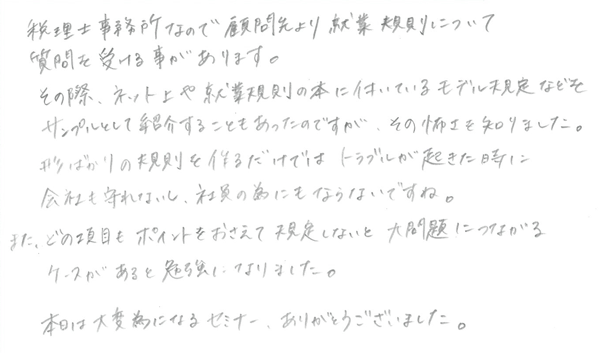 税理士事務所なので顧問先より就業規則について
質問を受ける事があります。
その際、ネット上や就業規則の本に付いているモデル規定などを
サンプルとして紹介することもあったのですが、その怖さを知りました。
形ばかりの規則を作るだけではトラブルが起きた時に
会社も守れないし、社員の為にもならないですね。
また、どの項目もポイントをおさえて規定しないと大問題につながる
ケースがあると勉強になりました。
本日は大変為になるセミナー、ありがとうございました。